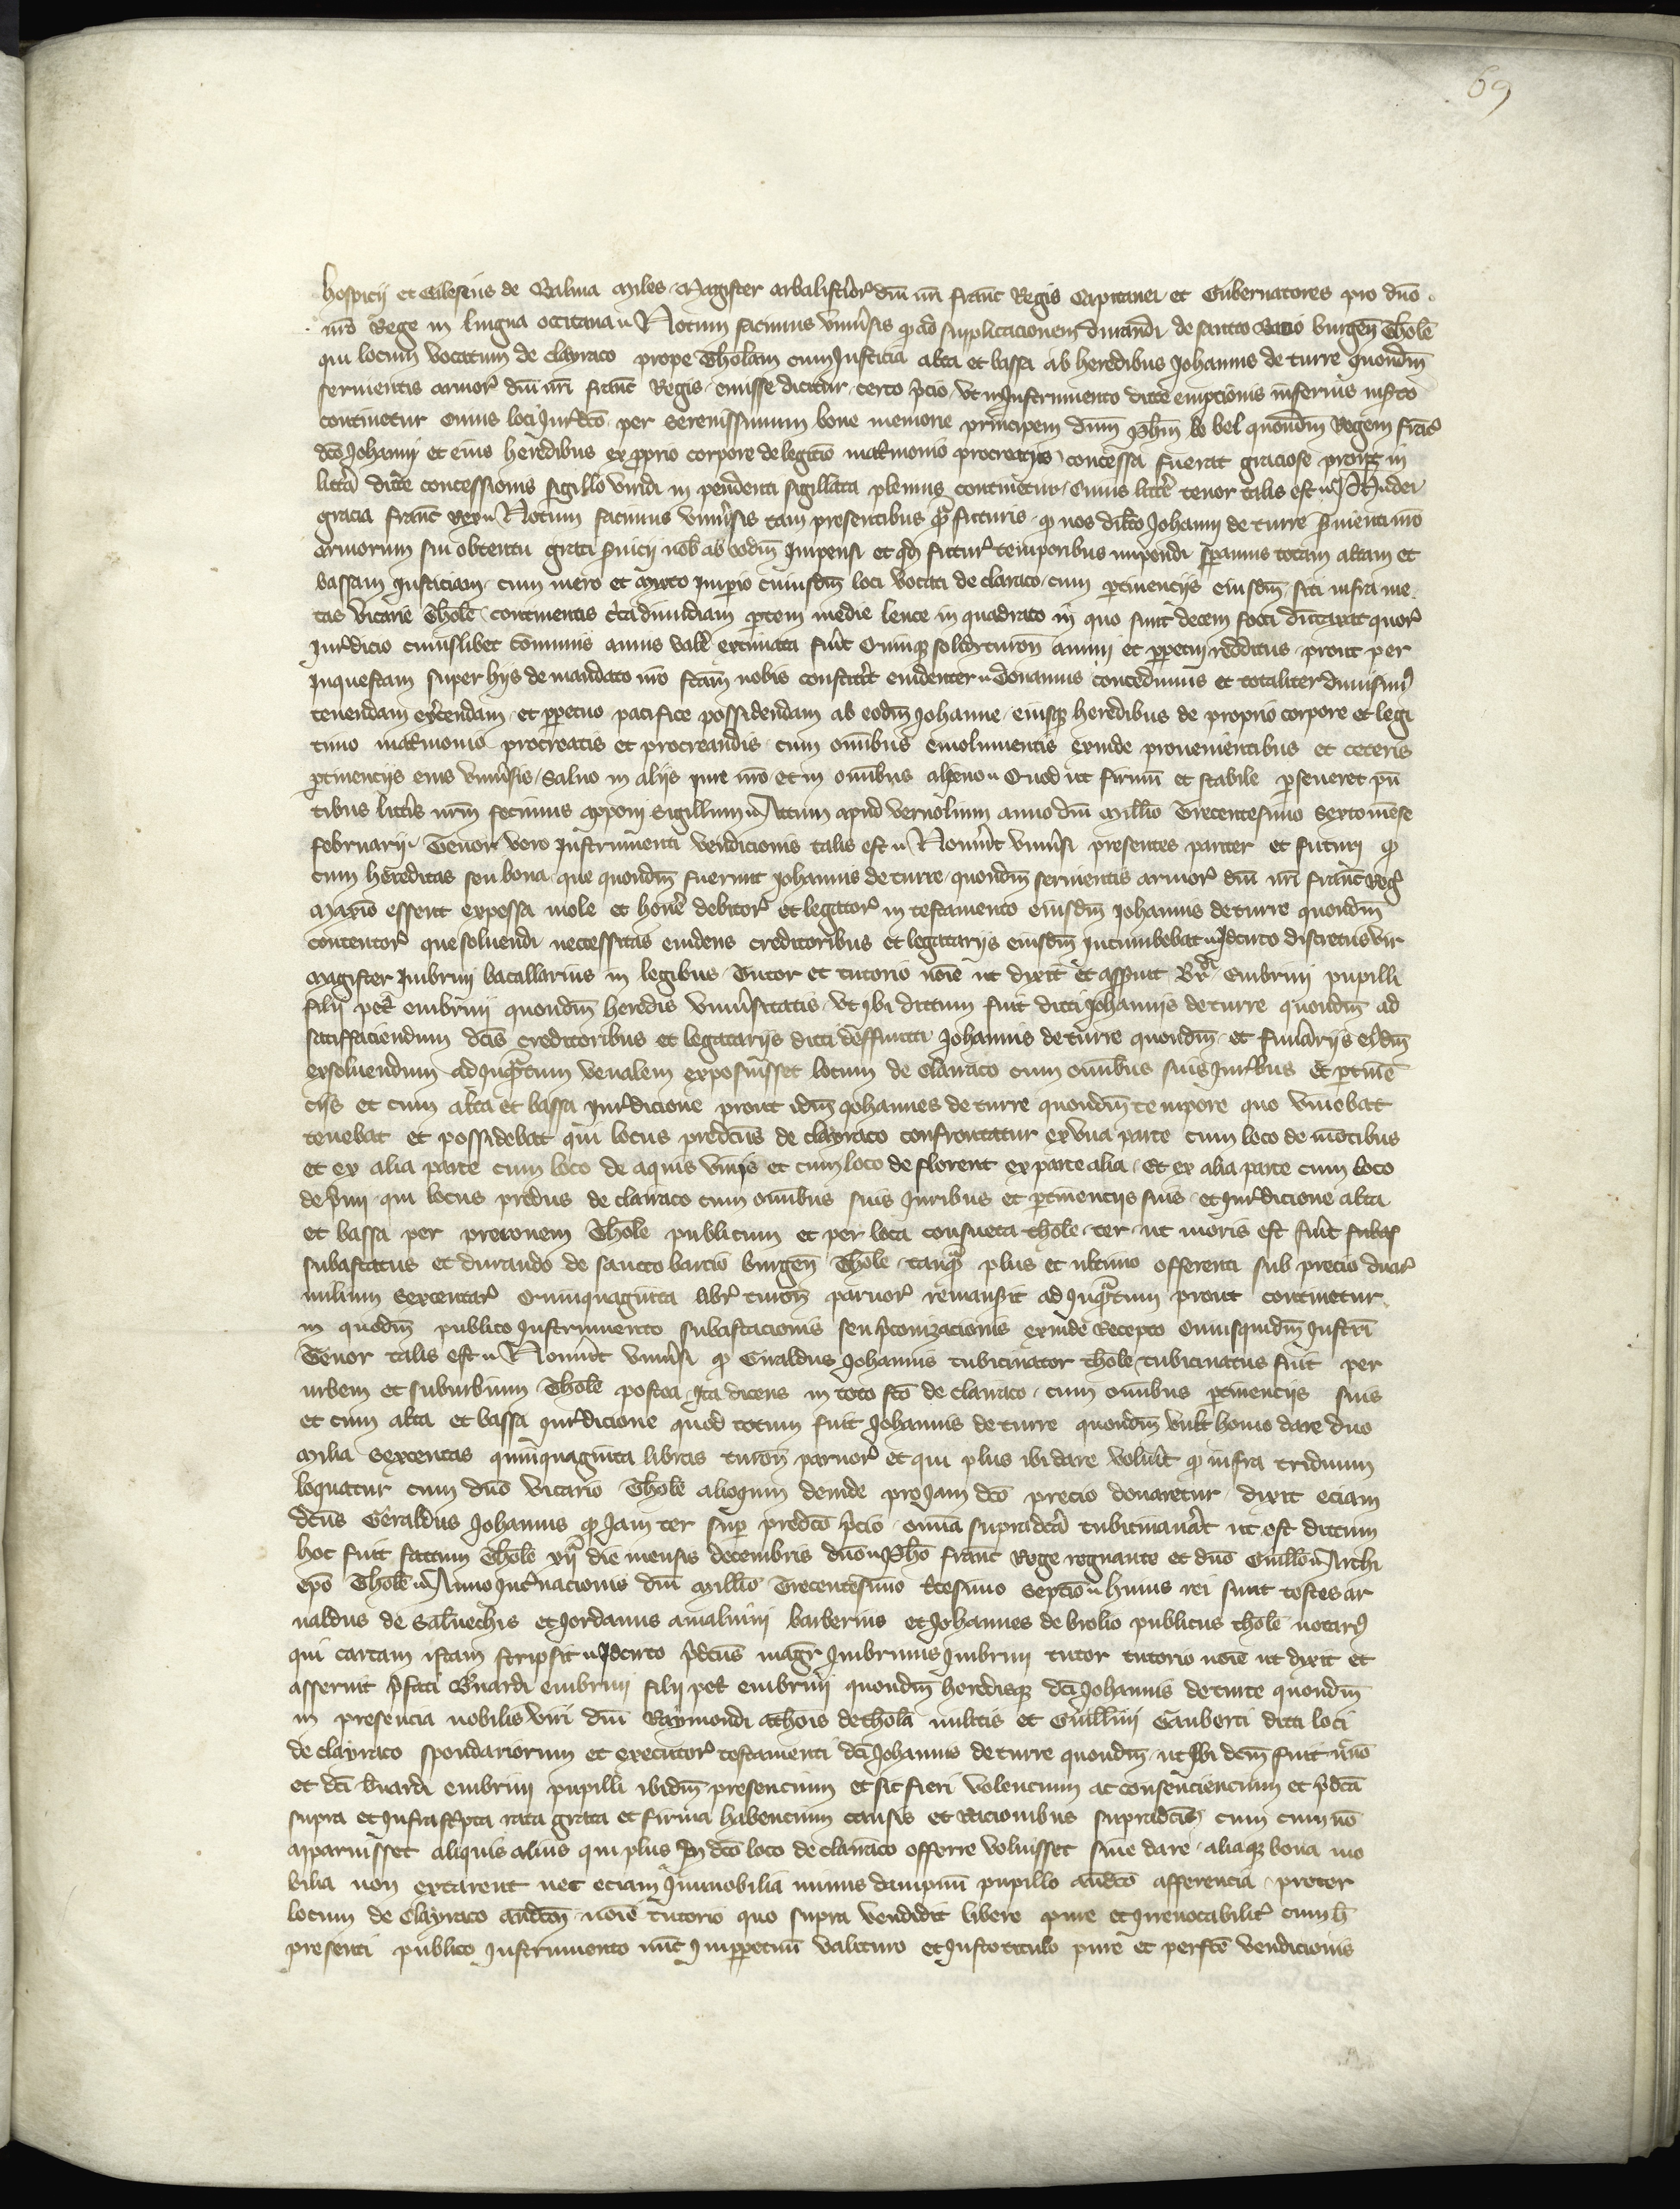 69
hospicii et Galesius de Balma miles Magister arbalistaror dni nri franc Regis Capitanei et Gubernatores pro dno
nro Rege in lingua occitana Notum facimus universis q ad supplicacionem durandi de sancto barcio burgen Thole
qui locum vocatum de clayraco prope Tholam cum Justicia alta et bassa ab heredibus Johannis de turre quondm
servientis armor dni nri franc Regis emisse dicitur certo pcio ut in Instrumento dicte empcionis inferius inserto
continetur cuius loci Jurdco per serenissimum bone memorie principem dnm phm lo bel quondm Regem franc
dco Johanni et eius heredibus ex pprio corpore de legitio matrmonio procreatis concessa fuerat graciose prout in
littera dicte concessionis sigillo viridi in pendenti sigillata plenius continetur Cuius littere tenor talis est Ph dei
gracia franc rex Notum facimus universis tam presentibus qm futuris q nos dilcto Johanni de turre servienti nro
armorum sui obtentu grati servicii nob ab eodm Impensi et qd futur temporibus impendi speramus totam altam et
bassam Justiciam cum mero et mixto Imperio cuiusdm loci vocati de claraco cum ptinenciis eiusdm siti infra me
tas vicarie Thole continentis circa dimidiam ptem medie leuce in quadrato in quo sunt decem foci dumtaxat quor
Jurdicio cuiuslibet communis annis valere extimata fuit Quinq solidor turon annui et ppetui redditus prout per
Inquestam super hiis de mandato nro fcam nobis constitit evidenter Donamus concedimus et totaliter dimisimus
tenendam exercendam et ppetuo pacifice possidendam ab eodm Johanne eiusq heredibus de proprio corpore et legi
timo matrmonio procreatis et procreandis cum omnibus emolumentis exinde provenientibus et ceteris
ptinenciis eius universis Salvo in aliis iure nro et in omnibus alieno Quod ut firmum et stabile pseveret psen
tibus litteris nrm fecimus apponi Sigillum Actum apud vernolium anno dni Millio Trecentesimo Sexto mense
februarii Tenor vero Instrumenti vendicionis talis est Noverint universi presentes pariter et futuri q
cum hereditas seu bona que quondm fuerunt Johannis de turre quondm servientis armor dni nri franc Reg
maxio essent expessa mole et honere debitor et legator in testamento eiusdm Johannis de turre quondm
contentor que solvendi necessitas evidens creditoribus et legatariis eiusdm Incumbebat Idcirco discretus vir
Magister Imbrini bacallarius in legibus Tutor et tutorio noie ut dixit et asseruit Brdi embrini pupilli
filii petri embrini quondm heredis universitatis ut Ibi dictum fuit dicti Johannis de turre quondm ad
satisfaciendum dcis creditoribus et legatariis dicti deffuncti Johannis de turre quondm et funerariis eidm
exsolvendum ad Inquantum venalem exposuisset locum de Clairaco cum omnibus suis Juribus et ptinen
ciis et cum alta et bassa Jurdicione prout idm Johannes de turre quondm tempore quo vivebat
tenebat et possidebat qui locus predictus de clayraco confrontatur ex una parte cum loco de montibus
et ex alia parte cum loco de aquis vivis et cum loco de florent ex parte alia et ex alia parte cum loco
de qui locus predus de clairaco cum omnibus suis Juribus et ptinenciis suis et Jurdicione alta
et bassa per preconem Thole publicum et per loca consueta thole ter ut moris est fuit subas
subastatus et durando de sancto barcio burgen Thole tanq plus et ultimo offerenti sub precio duar
milium sexcentar Quinquaginta libr turon parvor remansit ad Inquantum prout continetur
in quodm publico Instrumento subastacionis seu pconizacionis exinde Recepto Cuiusquidm Instri
Tenor talis est Noverint universi q Giraldus Johannis tubicinator thole tubicinatus fuit per
urbem et suburbium Thole postea Ita dicens in toto fco de clairaco cum omnibus ptinenciis suis
et cum alta et bassa Jurdicione quod totum fuit Johannis de turre quondm vult homo dare duo
milia sexcentas quinquaginta libras turon parvor et qui plus ibi dare voluerit q infra triduum
loquatur cum dno vicario Thole alioquin deinde pro Jam dco precio donaretur dixit eciam
dcus Geraldus Johannis q Jam ter sup predco pcio omnia supradca tubicinaverat ut est dictum
hoc fuit factum Thole xii die mensis decembris dno Pho franc Rege regnante et dno Guillo Archi
epo Thole Anno Incarnacionis dni millio Trecentesimo tricesimo Septio huius rei sunt testes ar
naldus de Salvechis et Jordanus amalvini barberius et Johannes de brolio publicus thole notarius
qui cartam istam scripsit Idcirco pdcus magr Imbrinus Imbrini tutor tutorio noie ut dixit et
asseruit pfati Bnardi embrini filii petri embrini quondm heredisq dci Johannis de turre quondm
in presencia nobilis viri dni Raymondi athonis de thola militis et Guillmi Gauberti dicti loci
de clayraco spondariorum et executor testamenti dci Johannis de turre quondm ut Ibi dcm fuit
et dci bnardi embrini pupilli ibidm presencium et sic fieri volencium ac consenciencium et pdca
supra et Infrascpta rata grata et firma habencium causis et Racionibus supradcis cum cum no
apparuisset aliquis alius qui plus In dco loco de clairaco offerre voluisset sive dare aliaq bona mo
bilia non extarent nec eciam Immobilia minus dampnu pupillo andco afferencia preter
locum de Clayraco andcm noie tutorio quo supra vendidit libere pure et Irrevocabiliter cum h
presenti publico Instrumento nunc Imppetuum valituro et Justo titulo pure et perfecte vendicionis